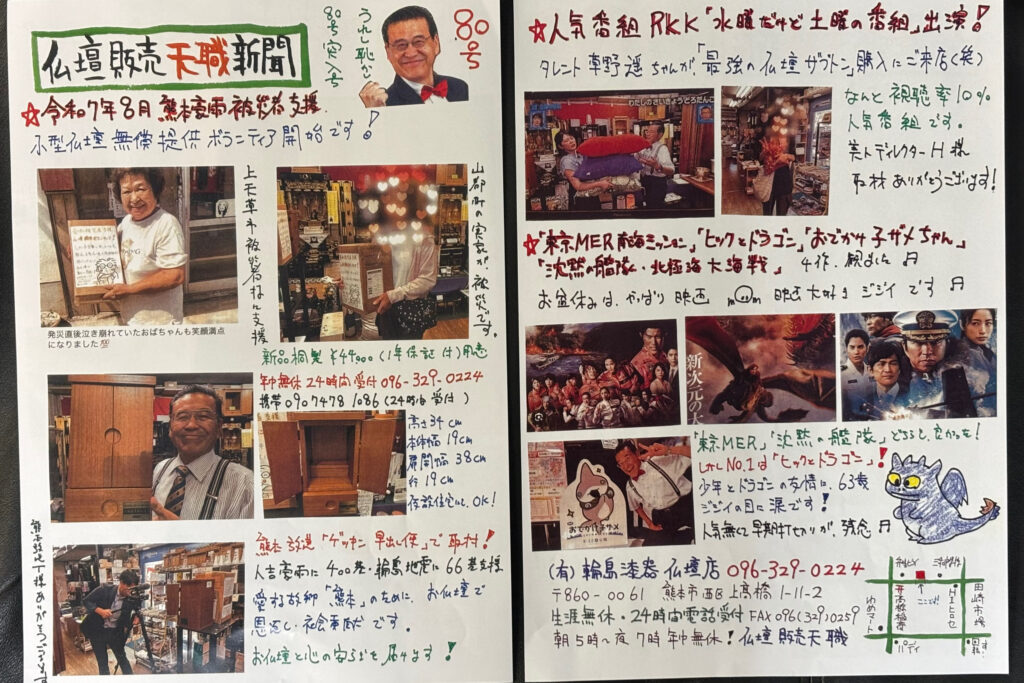 仏壇販売天職新聞
うれし恥かし
80号突入号
80号
☆令和7年8月 熊本豪雨被災者支援
小型仏壇無償提供ボランティア開始です！
上天草市被災者様に支援
山都町の実家が被災です。
発災直後泣き崩れていたおばちゃんも笑顔満点
になりました
新品桐製￥44,000(1年保証付)用意
年中無休24時間受付096-329-0224
携帯090 7478 1086(24時間受付)
高さ34cm
本体幅19cm
扉開幅38cm
奥行19cm
仮設住宅にOK!
熊本放送「ゲツキン早出し便」で取材！
人吉豪雨に400基・輪島地震に66基支援
愛する故郷「熊本」のために、お仏壇で
恩返し・社会奉仕です。
お仏壇と心の安らぎを届けます！
ありがとうございます
☆人気番組RKK「水曜だけど土曜の番組」出演！
タレント草野遥ちゃんが、「最強の仏壇ザブトン」購入にご来店(笑)
わたしのさいきょうとろだんご
なんと視聴率10%
人気番組です。
美人ディレクターH様
取材ありがとうございます!
☆「東京MER南海ミッション」「ヒックとドラゴン」「おでかけ子ザメちゃん」
「沈黙の艦隊・北極海大海戦」 4作、観ました
お盆休みは、やっぱり映画 映画大好きジジイです
新次元の
おでかけ子ザメ
「東京MER」「沈黙の艦隊」どちらも良かった!
しかしNo.1は「ヒックとドラゴン」！
少年とドラゴンの友情に、63歳
ジジイの目に涙です！
人気無くて早期打セリが、残念
(有)輪島漆器仏壇店 096-329-0224
〒860-0061 熊本市西区上高橋1-11-2
生涯無休・24時間電話受付 FAX096(329)0259
朝5時〜夜7時年中無休！仏壇販売天職
ここです!
高橋稲荷
田崎市場